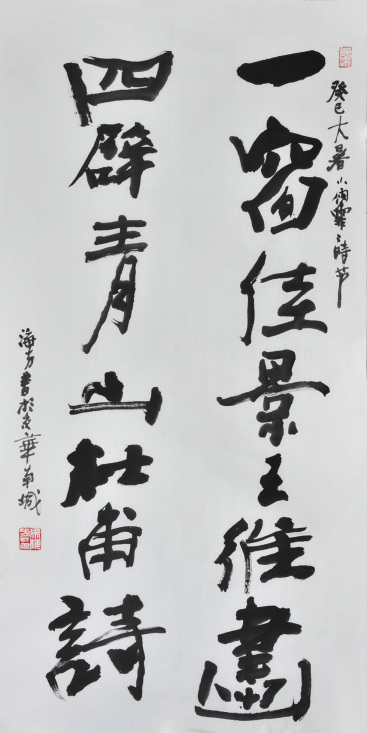 癸巳大暑小雨霏霏時节
一窗佳景王維畫
四壁青山杜甫詩
海方書於京華南城